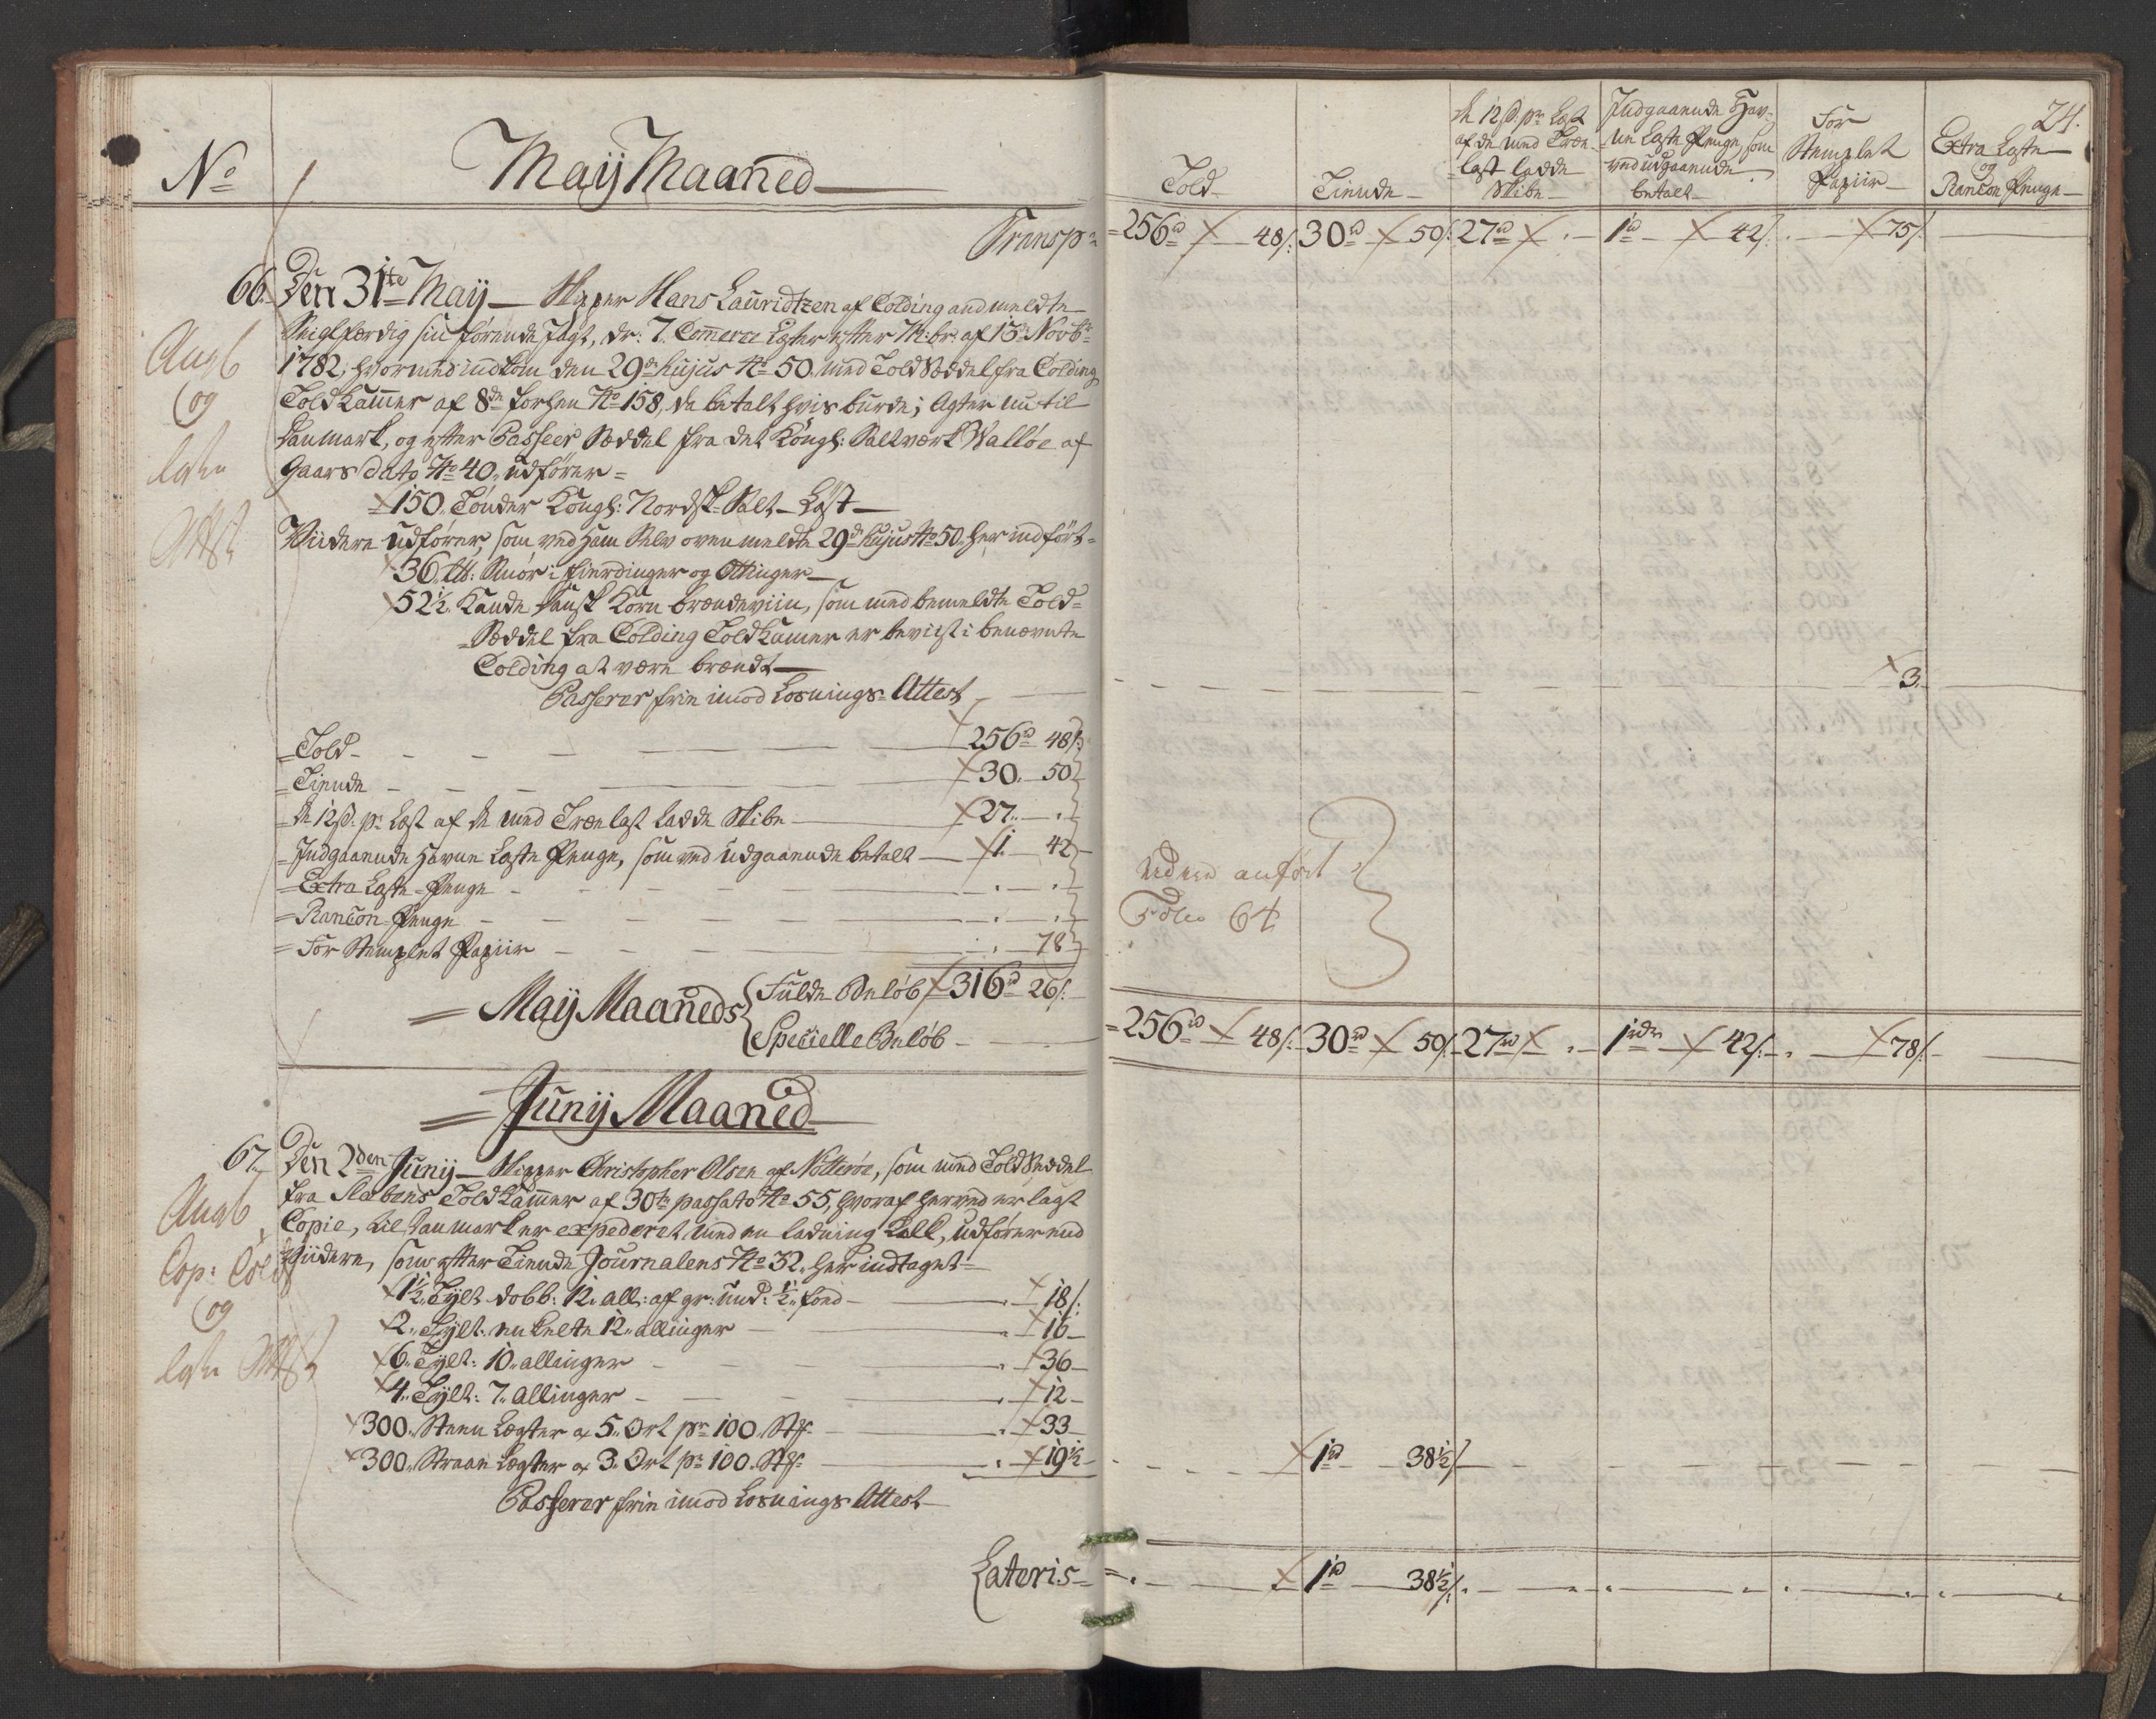 No
Maij Maaned
Transp:
66. Den 31te Maij Skipper Hans Lauridtzen af Colding andmeldte
Seiglfærdig sin førende Jagt, dr: 7. Com̅erce Læster efter M: br: af 15de Novbr
1782, hvormed indkom den 29de hujus No 50. med Told Seddel fra Colding
Told Kam̅er af 8de forhen No 158, da betalt hvis burde; Agter nu til
Danmark, og efter Passeer Seddel fra det Kongl: Saltværk Walløe af
Gaars Dato No 40. udfører =
Angb
og
Losn
Attst
150. Tønder Kongl: Nordsk Salt Løst
Viidere udfører, som ved ham Selv ovenmeldte 29de hujus No 50. her indført =
36. lb: Smør i fierdinger og Ottinger
52 1/2. Kande Dansk Korn brændeviin, som med bemeldte Told=
Seddel fra Colding Told Kam̅er er beviist i benævnte
Colding at være brændt
Passerer frie imod Losnings Attest
Told 256rd 48s:
Tiende 30. 50
De 12s: pr Læst af de med Trælast ladde Skibe 27. .
Indgaaende Havne Læste Penge, som ved udgaaende betalt 1. 42
Extra Læste Penge . .
Rancon Penge . .
For Stemplet Papiir . 78
Maij Maaneds
Fulde Beløb 316rd 26s:
Specielle Beløb
Junij Maaned
67. Den 2den Junij Skipper Christopher Olsen af Nötterøe, som med Told Seddel
fra Slebens Told Kam̅er af 30te passato No 55, hvoraf herved er lagt
Copie, til Danmark er expederet med en ladning Last, udfører end
Viidere, som efter Tiende Journalens No 32. her indtaget
Angb
Cop: Told S
og
Losn Attst
1 1/2. Tylt dobb: 12. all: af gr: und: 1/2. fond 18s:
2. Tylt. enkelte 12. allinger 16
6. Tylt: 10. allinger 36
4. Tylt: 7. allinger 12
300. Steen Lægter a 5. Ort pr 100. Stk: 33
300. Straae Lægter a 3. Ort pr 100. Stk: 19 1/2
Passerer frie imod Losnings Attest
Lateris
24.
Told
Tiende
De 12s: pr Læst
af de med Træ=
last ladde
Skibe
Indgaaende Hav=
ne Læste Penge, som
ved udgaaende
betalt
For
Stemplet
Papiir
Extra Læste
og
Rancon Penge
256rd 48s: 30rd 50s: 27rd . 1rd 42s: . 75s:
3.
anført
Folio 64
256rd 48s: 30rd 50s: 27rd . 1rdr 42s: . 78s:
1rd 38 1/2s
1rd 38 1/2s: